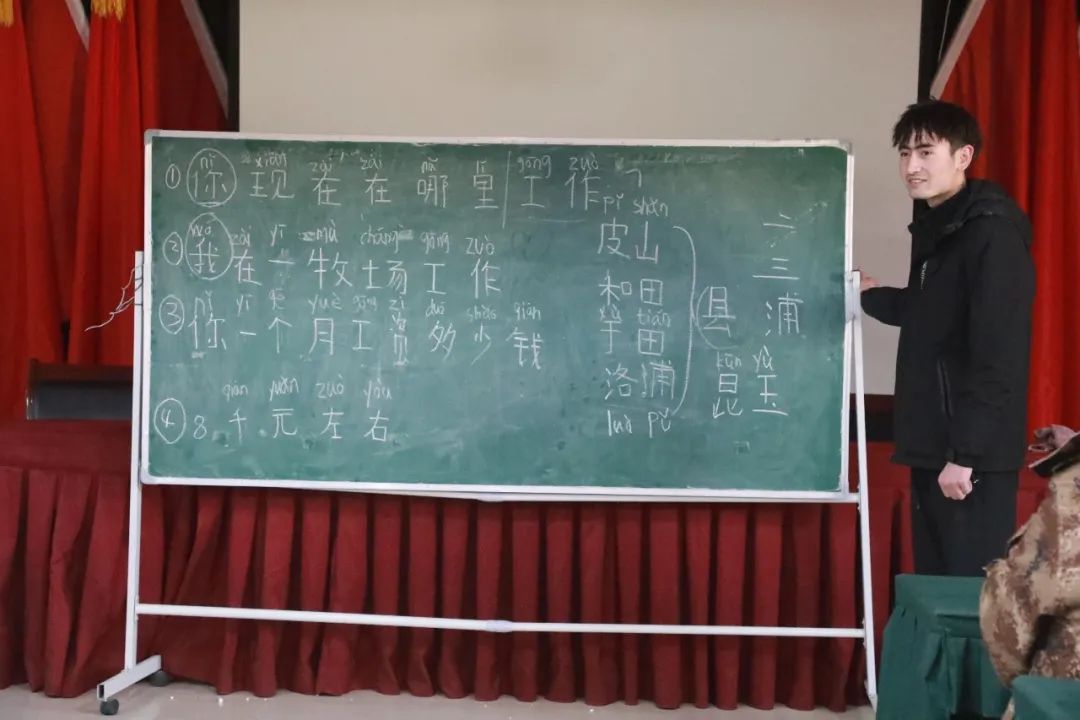 nǐ xiàn zài zài nǎ lǐ gōng zuò
① 你 现 在 在 哪 里 工 作
wǒ zài yī mù chǎng gōng zuò
② 我 在 一 牧 场 工 作
nǐ yī gè yuè gōng zī duō shǎo qián
③ 你 一 个 月 工 资 多 少 钱
qiān yuán zuǒ yòu
④ 8 千 元 左 右
pí shān
皮山
和田
yú tián
于田
洛浦
luò pǔ
县
二
三
浦
kūn yù
昆玉